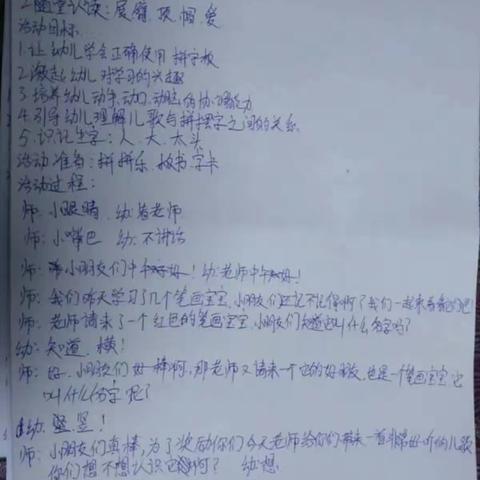 2.随堂认读：展臂、顶、帽、爱
活动目标：
1.让幼儿学会正确使用拼字板
2.激起幼儿对学习的兴趣
3.培养幼儿动手、动口、动脑的协调能力
4.引导幼儿理解儿歌与拼摆字之间的关系
5.识记生字：人、大、太、头
活动准备：拼拼乐、板书、字卡
活动过程：
师：小眼睛 幼：看老师
师：小嘴巴 幼：不讲话
师：小朋友们中午好！幼：老师中午好！
师：我们昨天学习了几个笔画宝宝，小朋友们还记不记得啊？我们一起来看看他们吧！
师：老师请来了一个红色的笔画宝宝，小朋友们知道它叫什么名字吗？
幼：知道，横！
师：好，小朋友们好棒啊，那老师又请来一个它的好朋友，也是一个笔画宝宝，它
叫什么名字呢？
幼：竖、竖！
师：小朋友们真棒，为了奖励你们今天老师给你们带来一首非常好听的儿歌
你们想不想认识它啊？ 幼：想